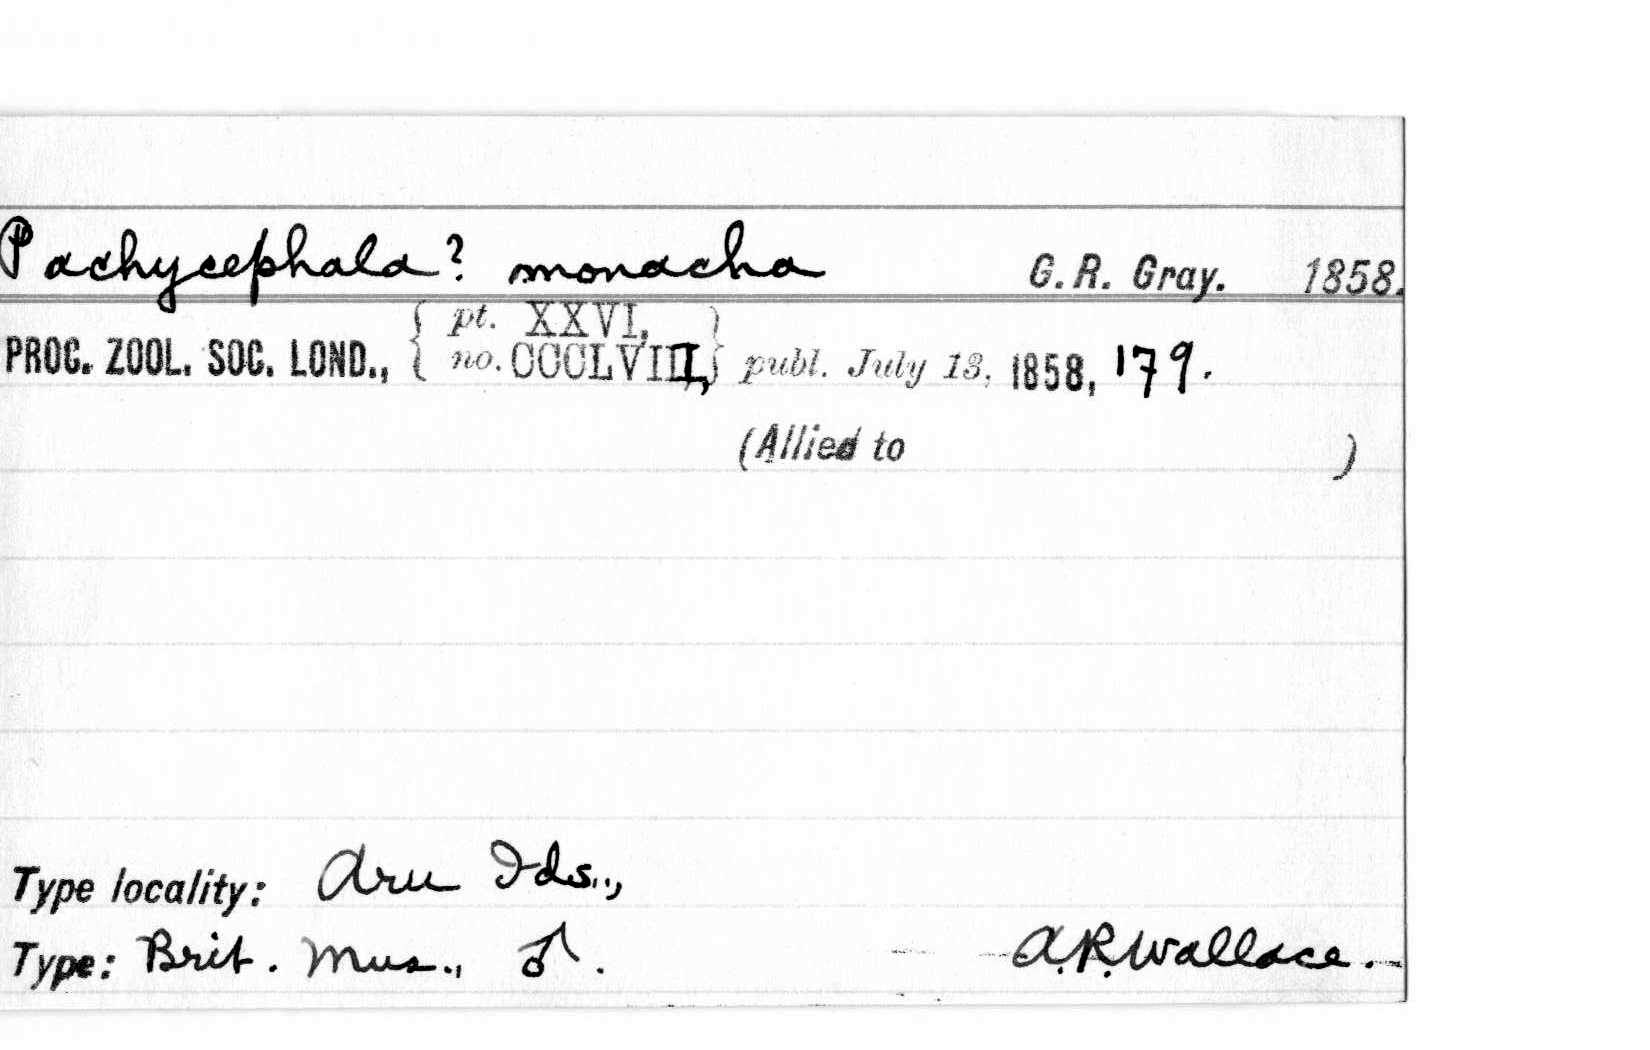 Pachycephala? monacha G. R. Gray. 1858.
PROC. ZOOL. SOC. LOND., { pt. XXVI,
no. CCCLVIII, } publ. July 13, 1858, 179.
(Allied to )
Type locality: Aru Ids.,
Type: Brit. Mus., ♂. A.R. Wallace.